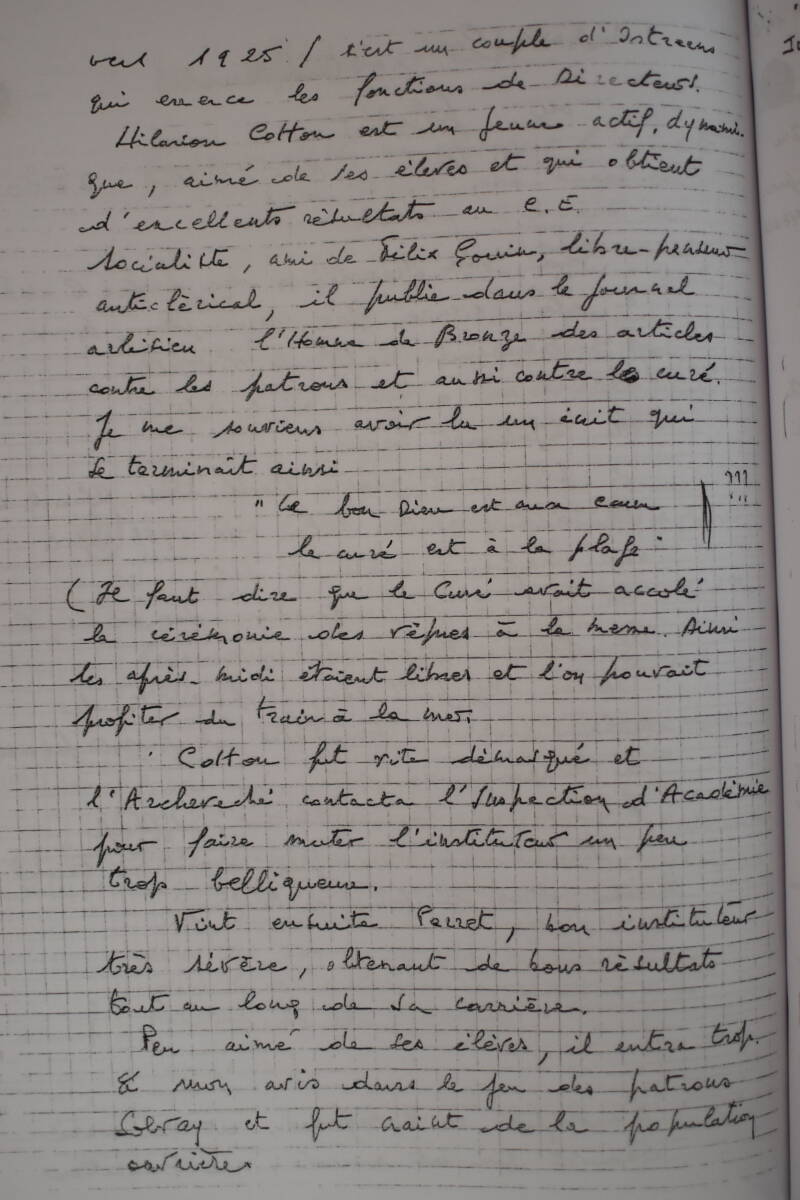 vers 1925 / c'est un couple d'Istreens
qui exerce les fonctions de Directeurs.
Hilarion Cotton est un jeune actif, dynami-
que, aimé de ses élèves et qui obtient
d'excellents résultats au C.E.
Socialiste, ami de Félix Gouin, libre-penseur
anticlérical, il publie dans le journal
arlésien l'Homme de Bronze des articles
contre les patrons et aussi contre le curé.
Je me souviens avoir lu un écrit qui
se terminait ainsi
"Le bon Dieu est aux cieux
le curé est à la plage"
(Il faut dire que le Curé avait accolé
la cérémonie des vêpres à la messe. Ainsi
les après-midi étaient libres et l'on pouvait
profiter du train à la mer.
Cotton fut vite démasqué et
l'Archevêché contacta l'Inspection d'Académie
pour faire muter l'instituteur un peu
trop belliqueux.
Vint ensuite Perret, bon instituteur
très sévère, obtenant de bons résultats
tout au long de sa carrière.
Peu aimé de ses élèves, il entra trop
à mon avis dans le jeu des patrons
Solvay et fut craint de la population
ouvrière.